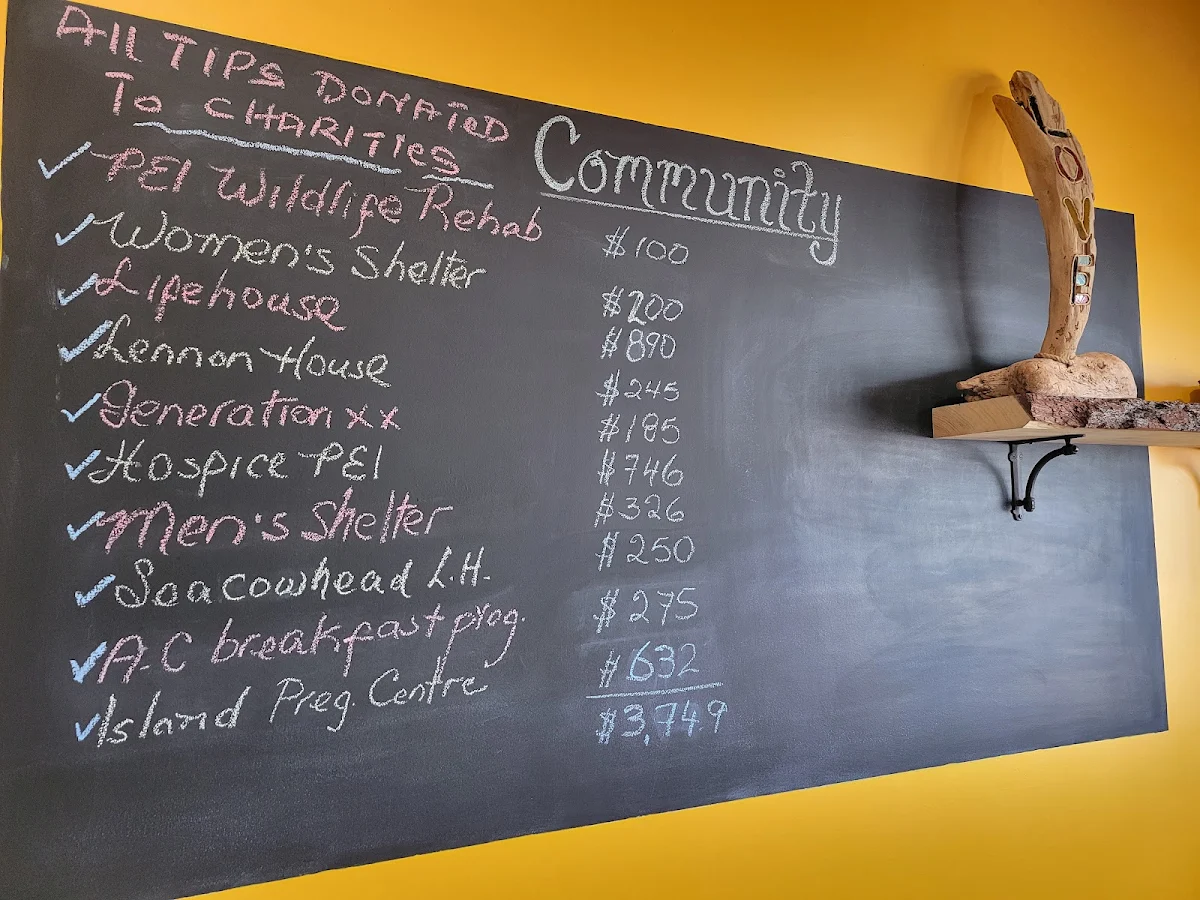 All TIPS DONATED
To CHARITIES
Community
✓ PEI Wildlife Rehab $100
✓ Women's Shelter $200
✓ Lifehouse $890
✓ Lennon House $245
✓ Generation xx $185
✓ Hospice PEI $746
✓ Men's Shelter $326
✓ Seacowhead L.H. $250
✓ A.C breakfast prog. $275
✓ Island Preg. Centre $632
$3,749